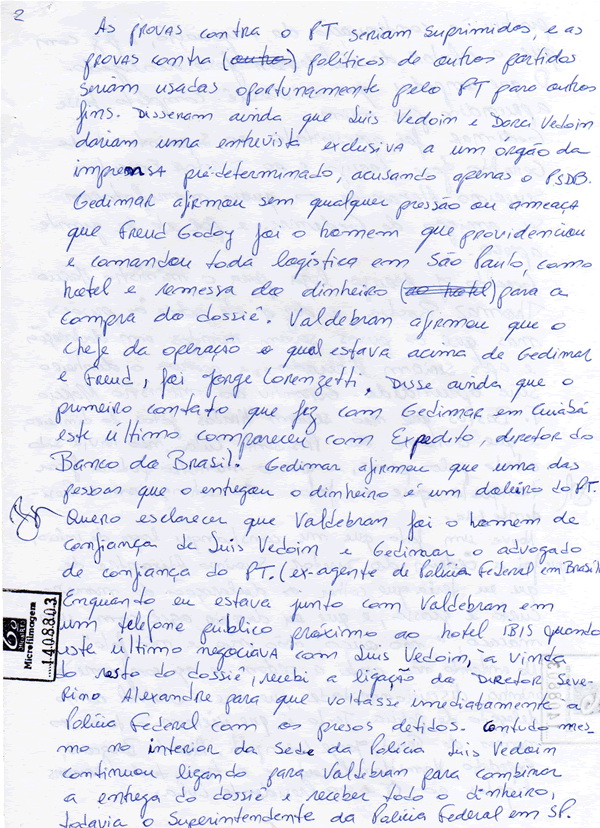 2
As provas contra o PT seriam suprimidas, e as
provas contra (outros) políticos de outros partidos
seriam usadas oportunamente pelo PT para outros
fins. Disseram ainda que Luis Vedoim e Darci Vedoim
dariam uma entrevista exclusiva a um órgão da
imprensa pré-determinado, acusando apenas o PSDB.
Gedimar afirmou sem qualquer pressão ou ameaça
que Freud Godoy foi o homem que providenciou
e comandou toda logística em São Paulo, como
hotel e remessa do dinheiro (ao hotel) para a
compra do dossiê. Valdebran afirmou que o
chefe da operação o qual estava acima de Gedimar
e Freud, foi Jorge Lorenzetti. Disse ainda que o
primeiro contato que fez com Gedimar em Cuiabá
este último compareceu com Expedito, diretor do
Banco do Brasil. Gedimar afirmou que uma das
pessoas que o entregou o dinheiro é um doleiro do PT.
Quero esclarecer que Valdebran foi o homem de
confiança de Luis Vedoim e Gedimar o advogado
de confiança do PT. (ex-agente de Polícia Federal em Brasíl
Enquanto eu estava junto com Valdebran em
um telefone público próximo ao hotel IBIS quando
este último negociava com Luis Vedoim, a vinda
do resto do dossiê, recebi a ligação da Diretor Seve-
rino Alexandre para que voltasse imediatamente a
Polícia Federal com os presos detidos. Contudo mes-
mo no interior da Sede da Polícia Luis Vedoim
continuou ligando para Valdebran para combinar
a entrega do dossiê e receber todo o dinheiro,
todavia o Superintendente da Polícia Federal em SP.
Microfilmagem
1408803